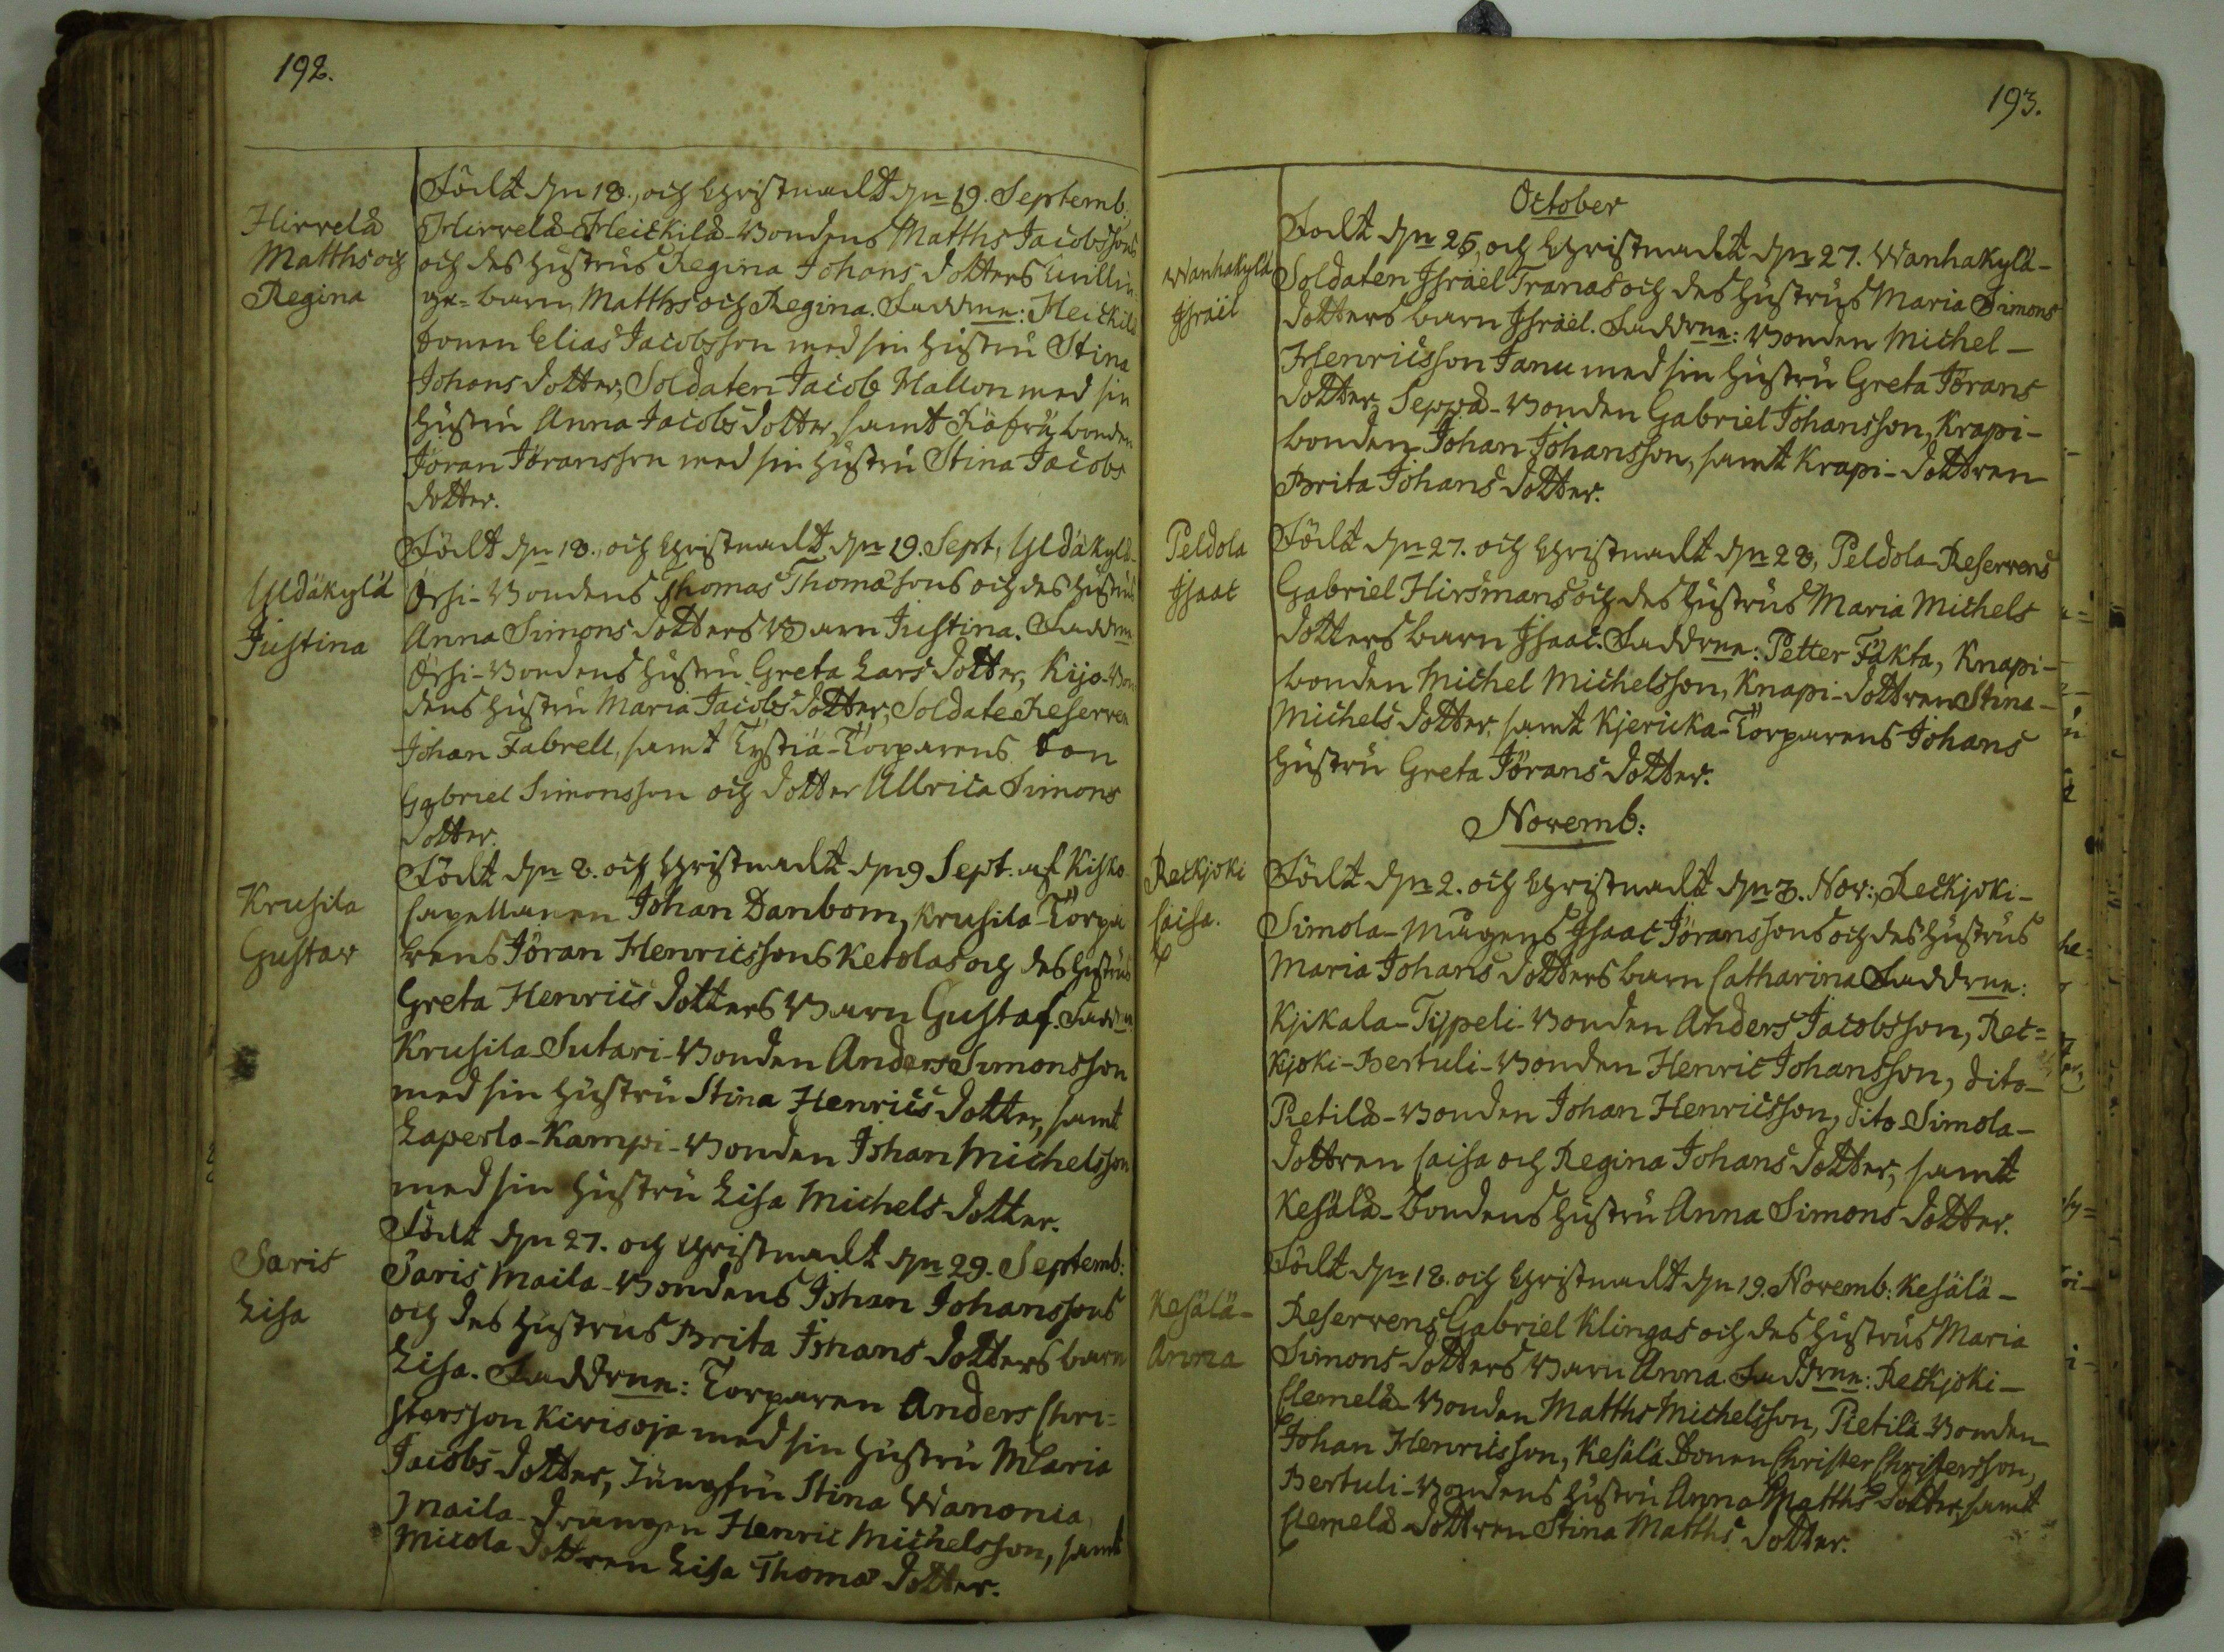 192.
Hirrelä
Matths och
Regina
Född dn 18., och Christnadt dn 19. Septemb.
Hirrelä-Heickilä-Bondens Matths Jacobssons
och des hustrus Regina Johans dotters twillin
ge-barn, Matths och Regina. Faddrne: Heickilä
sonen Elias Jacobsson med sin hustru Stina
Johans dotter, Soldaten Jacob Hallon med sin
hustru Anna Jacobs dotter, samt bonden
Jöran Jöransson med sin hustru Stina Jacobs
dotter.
Yldäkylä
Justina
Född dn 18., och Christnadt dn 19. Sept, Yldäkylä-
Örsi-Bondens Thomas Thomæsons och des hustrus
Anna Simons dotters Barn Justina. Faddrne
Örsi-Bondens hustru Greta Lars dotter, Kijo-Bon
dens hustru Maria Jacobs dotter, Soldate Reserven
Johan Fabrell, samt Tystiä-Torparens son
Gabriel Simonsson och dotter Ullrica Simons
dotter.
Krusila
Gustav
Född dn 8. och Christnadt dn 9 Sept. af Kisko
Capellanen Johan Danbom, Krusila-Torpa
rens Jöran Henricssons Ketolas och des hustrus
Greta Henrics dotters Barn Gustaf. Faddrne
Krusila-Sutari-Bonden Anders Simonsson
med sin hustru Stina Henrics dotter, samt
Laperla-Kampi-Bonden Johan Michelsson
med sin hustru Lisa Michels dotter.
Saris
Lisa
Född dn 27. och Christnadt dn 29. Septemb:
Saris Maila-Bondens Johan Johanssons
och des hustrus Brita Johans dotters barn
Lisa. Faddrne: Torparen Anders Chri=
stersson Kivisoja med sin hustru Maria
Jacobs dotter, Jungfru Stina Wanonia
Maila-Drängen Henric Michelsson, samt
Micola dottren Lisa Thomæ dotter.
193.
October
Wanhakylä
Jsraël
Född dn 26, och Christnadt dn 27. Wanhakylä-
Soldaten Jsraël Tranas och des hustrus Maria Simons
dotters barn Jsraël. Faddrne: Bonden Michel-
Henricsson Janu med sin hustru Greta Jörans
dotter, Seppä-Bonden Gabriel Johansson, Krapi-
bonden Johan Johansson, samt Krapi-dottren
Brita Johans dotter.
Peldola
Jsaac
Född dn 27. och Christnadt dn 28, Peldola-Reservens
Gabriel Hirsmans och des hustrus Maria Michels
dotters barn Jsaac. Faddrne: Petter Fäkta, Knapi-
bonden Michel Michelsson, Knapi-dottren Stina-
Michels dotter, samt Kjericka-Torparens Johans
hustru Greta Jörans dotter.
Novemb:
Reckjoki
Caisa.
Född dn 2. och Christnadt dn 3. Nov:, Reckjoki-
Simola-Mågens Jsaac Jöranssons och des hustrus
Maria Johans dotters barn Catharina Faddrne:
Kjikala-Typpeli-Bonden Anders Jacobsson, Rec=
kjoki-Bertuli-Bonden Henric Johansson, dito-
Pietilä-Bonden Johan Henricsson, dito Simola-
dottren Caisa och Regina Johans dotter, samt
Kesälä-bondens hustru Anna Simons dotter.
Kesälä-
Anna
Född dn 18. och Christnadt dn 19. Novemb: Kesälä-
Reservens Gabriel Klingas och des hustrus Maria
Simons dotters Barn Anna. Faddrne: Reckjoki-
Clemelä-Bonden Matths Michelsson, Pietilä-Bonden
Johan Henricsson, Kesälä Sonen Christer Christersson,
Bertuli-Bondens hustru Anna Matths dotter, samt
Clemelä-dottren Stina Matths dotter.